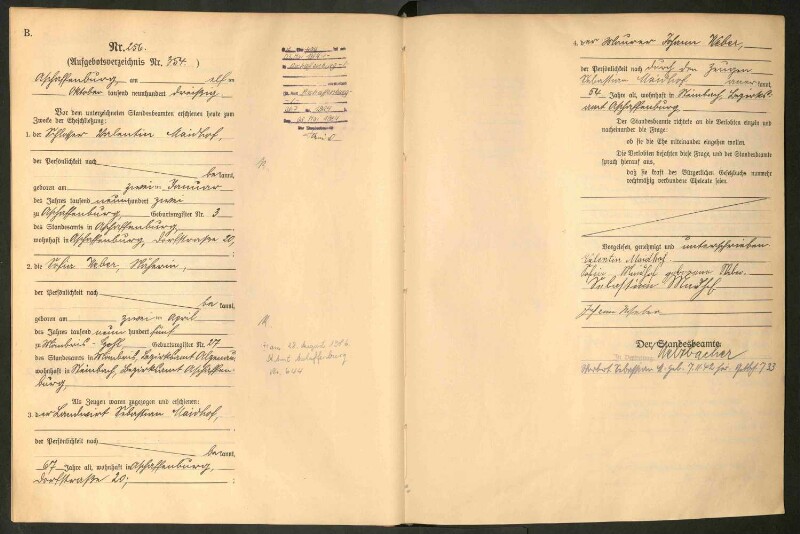 B.
Nr. 256.
(Aufgebotsverzeichnis Nr. 354.)
Aschaffenburg, am elf=
Oktober tausend neunhundert dreißig
Vor dem unterzeichneten Standesbeamten erschienen heute zum
Zwecke der Eheschließung:
1. der Schlosser Valentin Maidhof,
der Persönlichkeit nach
bekannt,
geboren am zwei= Januar
des Jahres tausend neunhundert zwei
zu Aschaffenburg, Geburtsregister Nr. 3
des Standesamts in Aschaffenburg,
wohnhaft in Aschaffenburg, Dorfstraße 20,
2. die Weber, Näherin,
der Persönlichkeit nach
bekannt,
geboren am zwei= April
des Jahres tausend neunhundert fünf
zu Mömbris, Geburtsregister Nr. 27
des Standesamts in Mömbris, Bezirksamt Alzenau
wohnhaft in Steinbach, Bezirksamt Aschaffen=
burg,
Als Zeugen waren zugezogen und erschienen:
3. der Landwirt Sebastian Maidhof,
der Persönlichkeit nach
bekannt,
67 Jahre alt, wohnhaft in Aschaffenburg,
Dorfstraße 20;
Aschaffenburg
4. der Maurer Johann Weber,
der Persönlichkeit nach durch den Zeugen
Sebastian Maidhof anerkannt,
54 Jahre alt, wohnhaft in Steinbach, Bezirks=
amt Aschaffenburg.
Der Standesbeamte richtete an die Verlobten einzeln und
nacheinander die Frage:
ob sie die Ehe miteinander eingehen wollen.
Die Verlobten bejahten diese Frage, und der Standesbeamte
sprach hierauf aus,
daß sie kraft des Bürgerlichen Gesetzbuchs nunmehr
rechtmäßig verbundene Eheleute seien.
Vorgelesen, genehmigt und unterschrieben
Valentin Maidhof
Maidhof geborene Weber.
Sebastian Maidhof
Johann Weber
Der Standesbeamte:
In Vertretung: